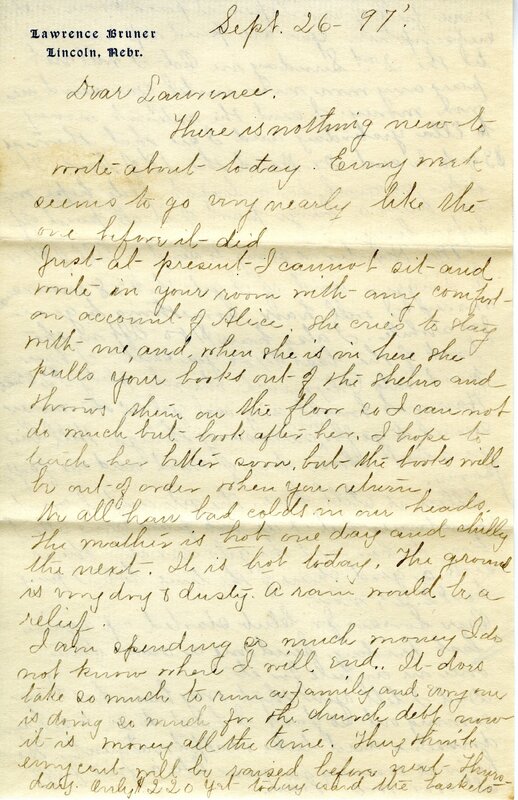 Lawrence Bruner
Lincoln, Nebr.
Sept. 26 - 97'.
Dear Lawrence.
There is nothing new to
write about today. Every week
seems to go very nearly like the
one before it did
Just at present I cannot sit and
write in your room with any comfort
on account of Alice. She cries to stay
with me, and when she is in here she
pulls your books out of the shelves and
throws them on the floor so I can not
do much but look after her. I hope to
teach her better soon, but the books will
be out of order when you return.
We all have bad colds in our heads.
The weather is hot one day and chilly
the next. It is hot today. The ground
is very dry & dusty. A rain would be a
relief.
I am spending so much money I do
not know where I will end.. It does
take so much to run a family and every one
is doing so much for the church debt now
it is money all the time. They think
every cent will be raised before next Thurs-
day. Only $220 yet today and the baskets